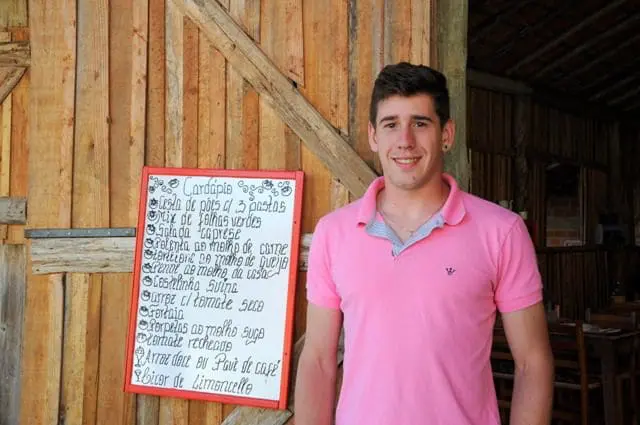 Cardápio
Cesta de pães c/ 3 pastas
Mix de folhas verdes
Salada caprese
Polenta ao molho de carne
ao molho de queijo
ao molho da casa
Costelinha suína
Arroz c/ tomate seco
Fortaia
Porpetas ao molho sugo
Tomate recheado
Arroz doce ou Pavê de café
Licor de Limoncello